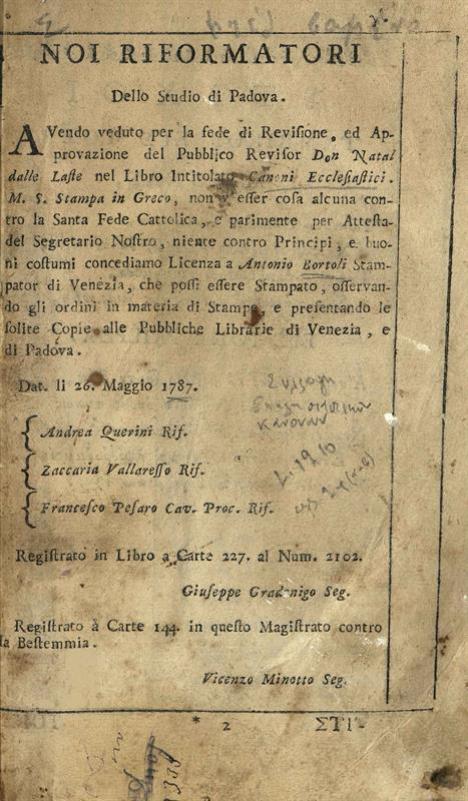 NOI RIFORMATORI
Dello Studio di Padova.
AVendo veduto per la fede di Revisione, ed Ap-
provazione del Pubblico Revisor Don Natal
dalle Laste nel Libro Intitolato Canoni Ecclesiastici.
M. S. Stampa in Greco, non v'esser cosa alcuna con-
tro la Santa Fede Cattolica, e parimente per Attesta-
del Segretario Nostro, niente contro Principi, e buo-
ni costumi concediamo Licenza a Antonio Bortoli Stam-
pator di Venezia, che possi essere Stampato, osservan-
do gli ordini in materia di Stampe, e presentando le
solite Copie alle Pubbliche Librarie di Venezia, e
di Padova.
Dat. li 26. Maggio 1787.
Συλλογη
κανονων
Andrea Querini Rif.
L. 1910
Zaccaria Vallaresso Rif.
Francesco Pesaro Cav. Proc. Rif.
Registrato in Libro a Carte 227. al Num. 2102.
Giuseppe Gradenigo Seg.
Registrato à Carte 144. in questo Magistrato contro
la Bestemmia.
Vicenzo Minotto Seg.
* 2 ΣΤΙ-